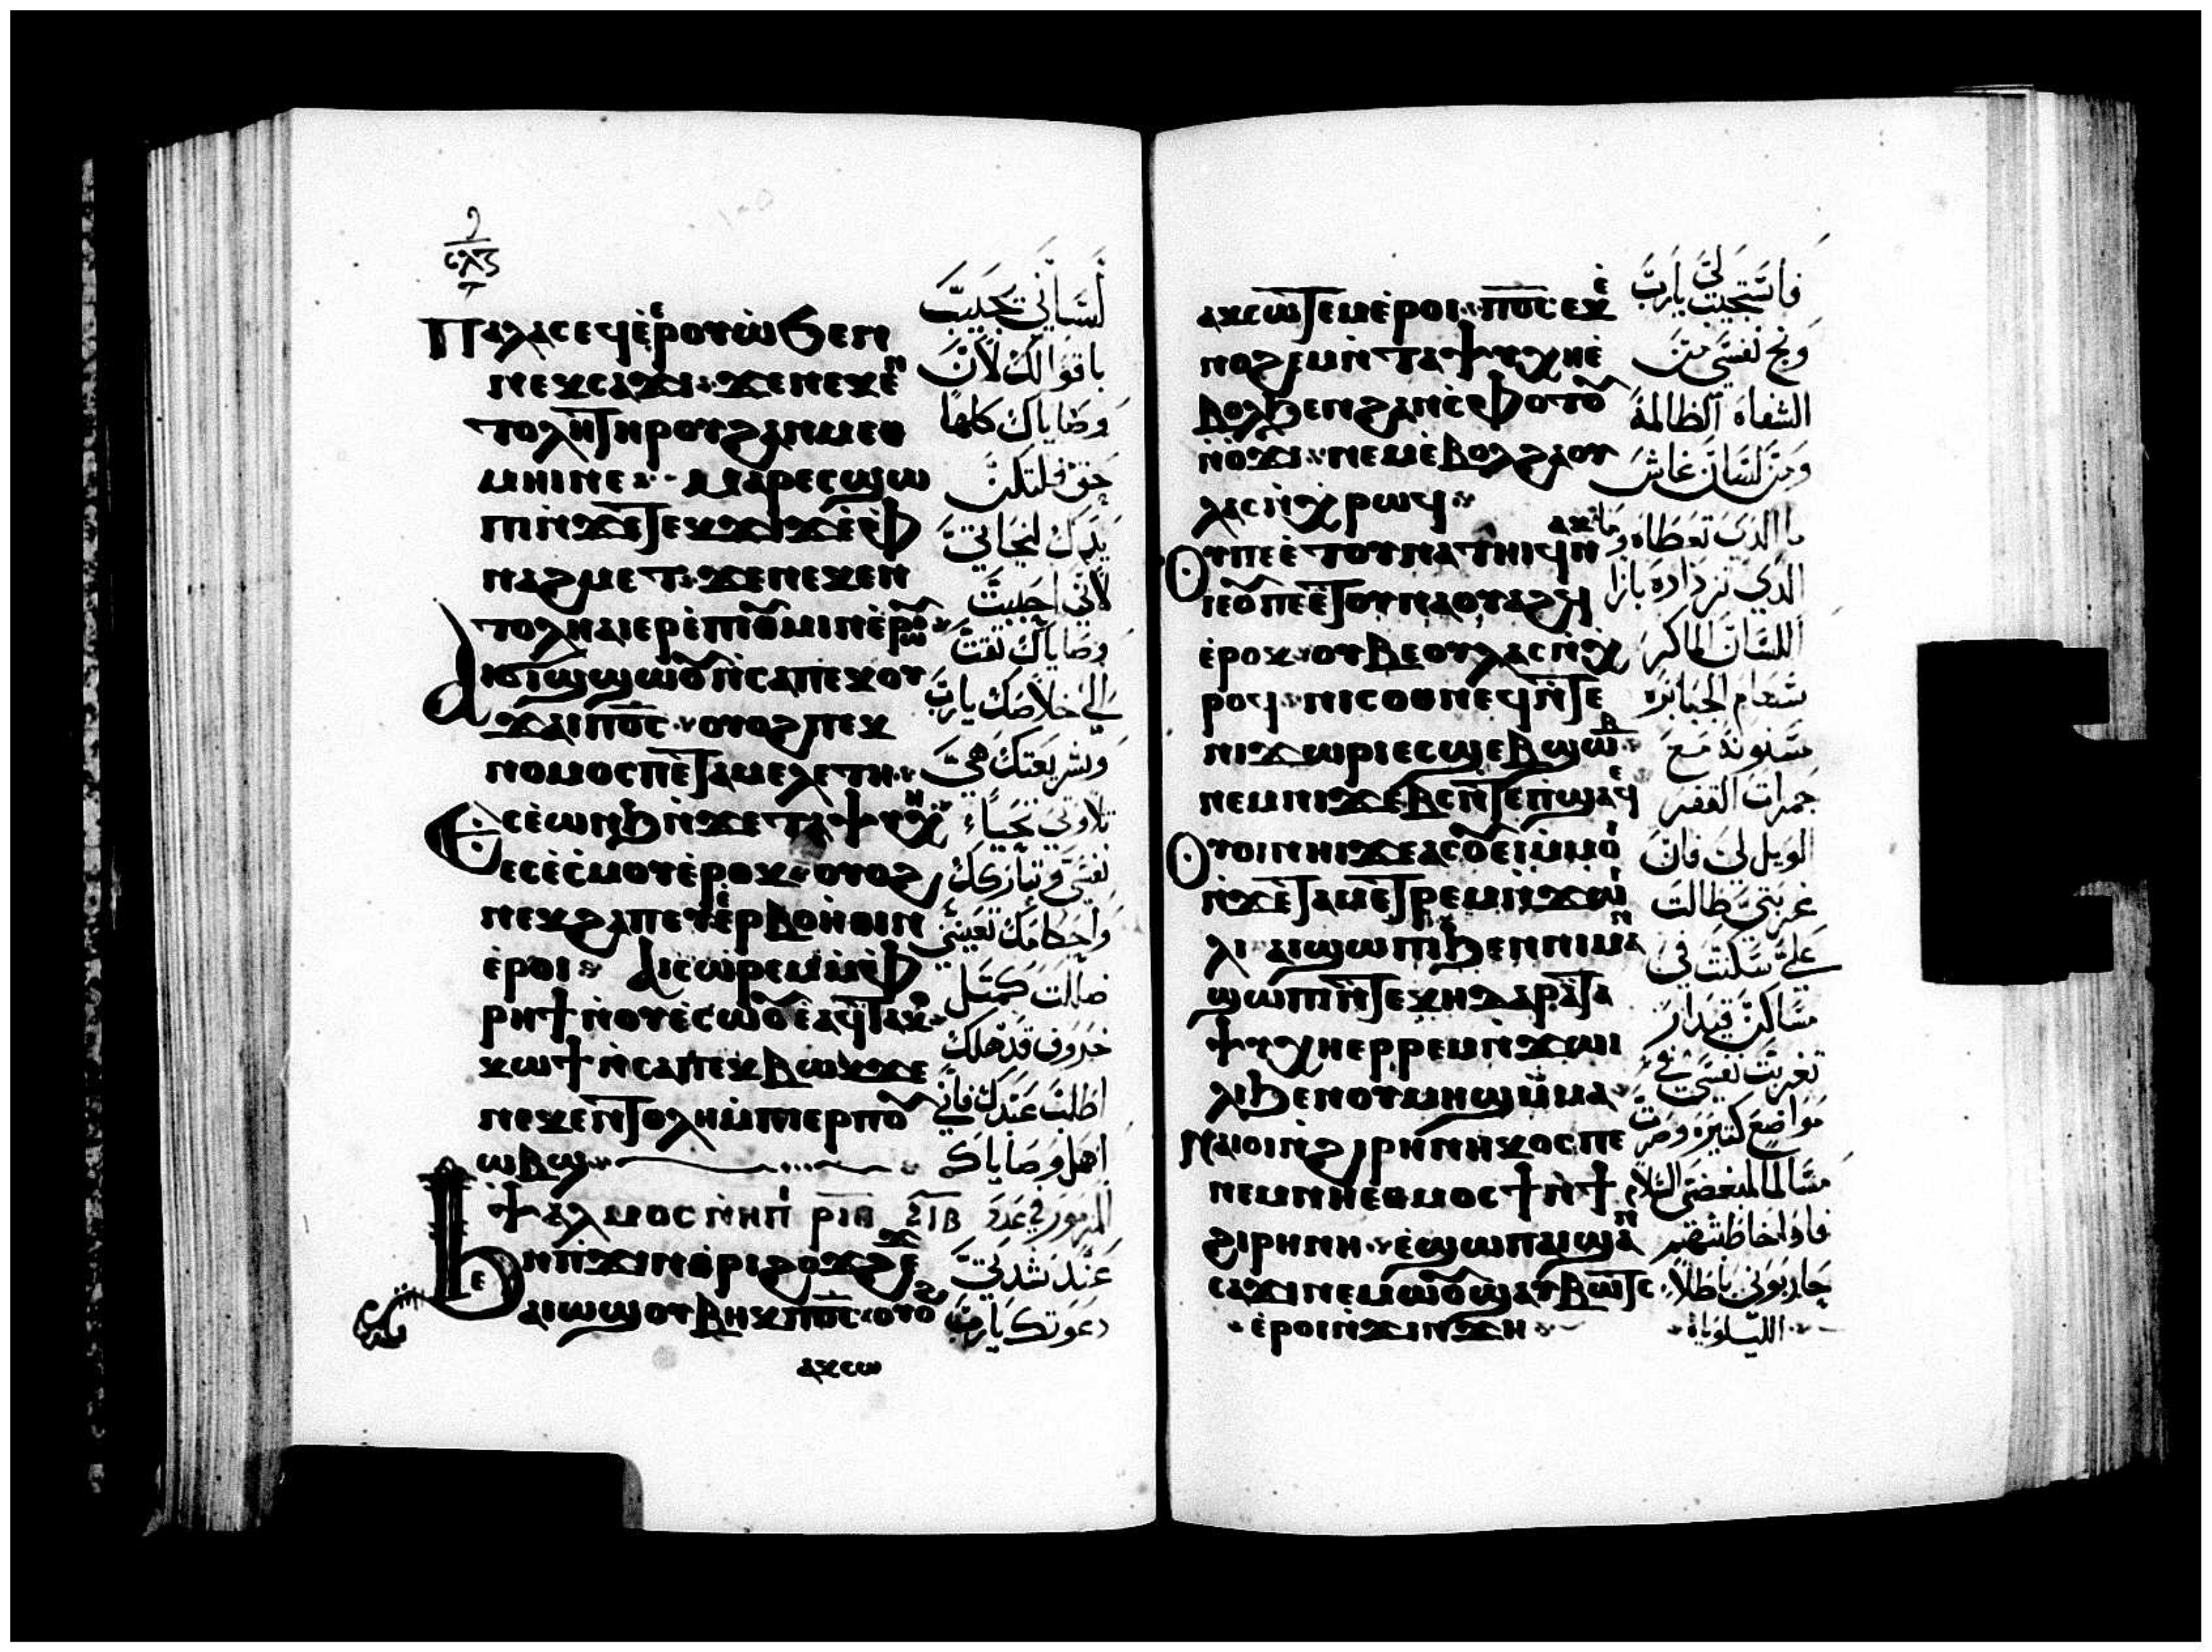 ⲡⲁⲗⲁⲥ ⲉϥⲉ̀ⲉⲣⲟⲩⲱ̀ ϧⲉⲛ
ⲛⲉⲕⲥⲁϫⲓ ϫⲉ ⲛⲉⲕⲉⲛ
ⲧⲟⲗⲏ ⲧⲏⲣⲟⲩ ϩⲁⲛⲙⲉⲑ
ⲙⲏⲓ ⲛⲉ ⲙⲁⲣⲉⲥϣⲱ
ⲡⲓ ⲛ̀ϫⲉ ⲧⲉⲕϫⲓϫ ⲉ̀ⲫ
ⲛⲁϩⲙⲉⲧ ϫⲉ ⲛⲉⲕⲉⲛ
ⲧⲟⲗⲏ ⲁⲓⲉⲣⲉ̀ⲡⲓⲑⲩⲙⲓⲛ ⲉ̀ⲣⲱⲟⲩ
ⲁⲓϭⲓϣϣⲱⲟⲩ ⲛ̀ⲥⲁ ⲡⲉⲕⲟⲩ
ϫⲁⲓ ⲡⲟ̅ⲥ̅ ⲟⲩⲟϩ ⲡⲉⲕ
ⲛⲟⲙⲟⲥ ⲡⲉ ⲧⲁⲙⲉⲗⲉⲧⲏ
ⲉⲥⲉ̀ⲱⲛϧ ⲛ̀ϫⲉ ⲧⲁⲯⲩⲭⲏ
ⲉⲥⲉ̀ⲥ̀ⲙⲟⲩ ⲉ̀ⲣⲟⲕ ⲟⲩⲟϩ
ⲛⲉⲕϩⲁⲡ ⲉⲩⲉ̀ⲉⲣⲃⲟⲏ̀ⲑⲓⲛ
ⲉ̀ⲣⲟⲓ ⲁⲓⲥⲱⲣⲉⲙ ⲙ̀ⲫ
ⲣⲏϯ ⲛ̀ⲟⲩⲉ̀ⲥⲱⲟⲩ ⲉ̀ⲁϥⲧⲁⲕⲟ
ⲕⲱϯ ⲛ̀ⲥⲁ ⲡⲉⲕⲃⲱⲕ ϫⲉ
ⲛⲉⲕⲉⲛⲧⲟⲗⲏ ⲙ̀ⲡⲓⲉⲣⲡⲟⲩ
ⲱⲃϣ
ⲯⲁⲗⲙⲟⲥ ⲣⲓⲑ
ϧⲉⲛ ⲡ̀ϫⲓⲛⲑⲣⲓϩⲟϫϩⲉϫ
ⲁⲓⲱϣ ⲟⲩⲃⲏⲕ ⲡⲟ̅ⲥ̅ ⲟⲩⲟϩ
ⲁⲕⲥⲱ
لساني تجيب
باقوالك لان
وصاياك كلها
حق فلتكن
يدك لنجاتي
لاني احببت
وصاياك تقت
الي خلاصك يارب
وشريعتك هي
تلاوتي تحياء
نفسي وتباركك
واحكامك تعينني
ضللت كمثل
خروف قد هلك
اطلب عبدك فاني
وصاياك
المزمور
عند شدتي
دعوتك يارب
ⲁⲕⲥⲱⲧⲉⲙ ⲉ̀ⲣⲟⲓ ⲡⲟ̅ⲥ̅ ⲉⲕⲉ̀
ⲛⲟϩⲉⲙ ⲛ̀ⲧⲁⲯⲩⲭⲏ ⲉ̀
ⲃⲟⲗ ϧⲉⲛ ϩⲁⲛⲥ̀ⲫⲟⲧⲟⲩ
ⲛ̀ⲟ̀ϫⲓ ⲛⲉⲙ ⲉ̀ⲃⲟⲗ ϩⲁ ⲟⲩ
ⲗⲁⲥ ⲛ̀ⲭⲣⲟϥ
ⲟⲩ ⲡⲉ ⲉ̀ⲧⲟⲩⲛⲁⲧⲏⲓϥ ⲛⲁⲕ
ⲓⲉ ⲟⲩ ⲡⲉ ⲉ̀ⲧⲟⲩⲛⲁⲟⲩⲁϩϥ
ⲉ̀ⲣⲟⲕ ⲟⲩⲃⲉ ⲟⲩⲗⲁⲥ ⲛ̀ⲭ
ⲣⲟϥ ⲛⲓⲥⲟⲑⲛⲉϥ ⲛ̀ⲧⲉ
ⲛⲓϫⲱⲣⲓ ⲉⲥϣⲉⲃϣⲱⲃ
ⲛⲉⲙ ⲛⲓϫⲉⲃⲥ ⲛ̀ⲧⲉ ⲡ̀ϣⲁϥⲉ
ⲟⲩⲟⲓ ⲛⲏⲓ ϫⲉ ⲁⲥⲟⲩⲉⲓ ⲙ̀ⲙⲟⲓ
ⲛ̀ϫⲉ ⲧⲁⲙⲉⲧⲣⲉⲙⲛ̀ϫⲱⲓ
ⲗⲓ ⲁⲓϣⲱⲡⲓ ϧⲉⲛ ⲛⲓⲙⲁⲛ
ϣⲱⲡⲓ ⲛ̀ⲧⲉ ⲕⲏⲇⲁⲣ ⲁ̀ ⲧⲁ
ⲯⲩⲭⲏ ⲉⲣⲣⲉⲙⲛ̀ϫⲱⲓ
ⲗⲓ ϧⲉⲛ ⲟⲩⲙⲏϣ ⲙ̀ⲙⲁ
ⲛⲁⲓⲟⲓ ⲛ̀ϩⲓⲣⲏⲛⲏⲕⲟⲥ ⲡⲉ
ⲛⲉⲙ ⲛⲏⲉⲑⲙⲟⲥϯ ⲛ̀ϯ
ϩⲓⲣⲏⲛⲏ ⲉ̀ϣⲱⲡ ⲁⲓϣⲁⲛ
ⲥⲁϫⲓ ⲛⲉⲙⲱⲟⲩ ϣⲁⲩⲃⲱⲧⲥ
ⲉ̀ⲣⲟⲓ ⲛ̀ϫⲓⲛϫⲏ
فاستجبت لي يارب
ونج نفسي من
الشفاه الظالمة
ومن لسان غاش
ما الذي تعطاه وما
الذي تزداده بازا
اللسان الماكر
سهام الجبابره
مسنونه مع
جمرات القفر
الويل لي فان
غربتي طالت
علي سكنت في
مساكن قيدار
تغربت نفسي في
مواضع كثيره وصرت
مسالما لمبغضي السلام
فاذا خاطبتهم
حاربوني باطلا
الليلوياه